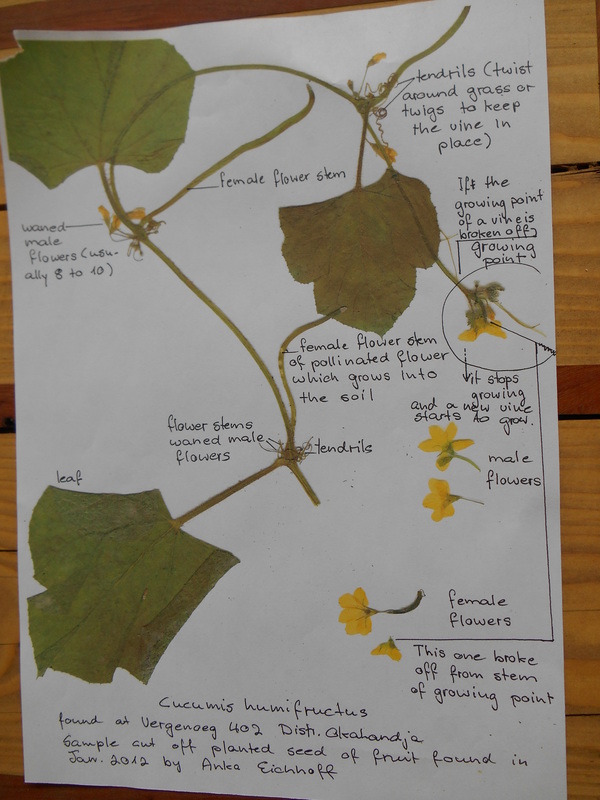 tendrils (twist
around grass or
twigs to keep
the vine in
place)
female flower stem
waned
male
flowers (usu-
ally 8 to 10)
If the
growing point
of a vine is
broken off,
growing
point
it stops
growing
and a new vine
starts to grow.
female flower stem
of pollinated flower
which grows into
the soil
flower stems
waned male
flowers
tendrils
leaf
male
flowers
female
flowers
This one broke
off from stem
of growing point
Cucumis humifructus
found at Vergenoeg 402 Distr. Okahandja
Sample cut off planted seed of fruit found in
Jan. 2012 by Anka Eichhoff